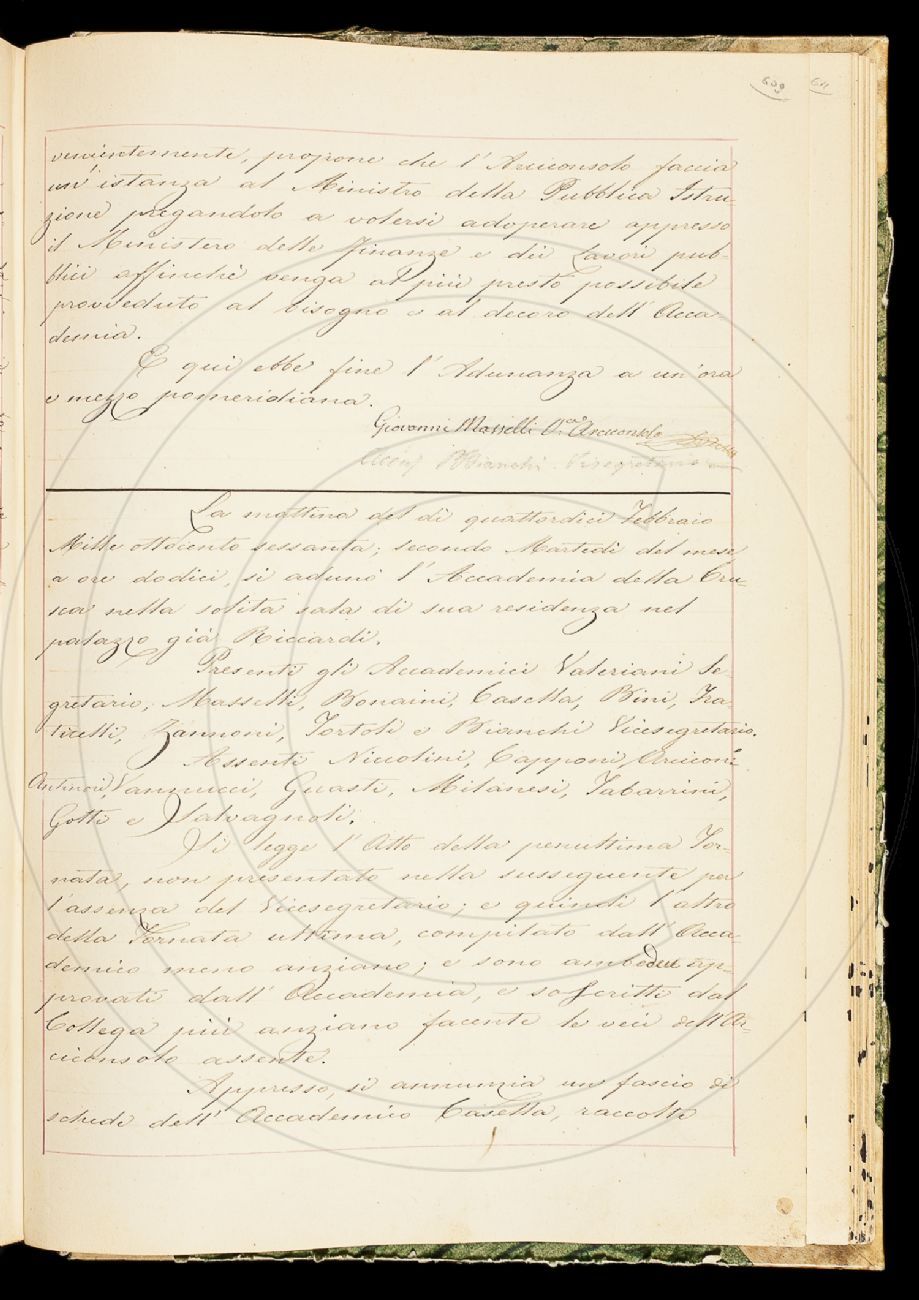 609 611
venientemente, propone che l'Arciconsolo faccia
un'istanza al Ministro della Pubblica Istru-
zione pregandolo a volersi adoperare appresso
il Ministero delle Finanze e dei Lavori pub-
blici affinchè venga al più presto possibile
provveduto al bisogno e al decoro dell'Acca-
demia.
E qui ebbe fine l'Adunanza a un'ora
e mezzo pomeridiana.
Giovanni Masselli Arciconsolo
Bianchi Vicesegretario
La mattina del dì quattordici Febbraio
Mille ottocento sessanta, secondo Martedì del mese,
a ore dodici, si adunò l'Accademia della Cru-
sca nella solita sala di sua residenza nel
palazzo già Riccardi.
Presenti gli Accademici Valeriani Se-
gretario, Masselli, Bonaini, Casella, Bini, Fra-
ticelli, Zannoni, Tortoli e Bianchi Vicesegretario.
Assenti Niccolini, Capponi, Arcicon.
Antinori, Vannucci, Guasti, Milanesi, Tabarrini,
Gotti e Salvagnoli.
Si legge l'Atto della penultima Tor-
nata, non presentato nella susseguente per
l'assenza del Vicesegretario; e quindi l'altro
della Tornata ultima, compilato dall'Acca-
demico meno anziano; e sono ambedue ap-
provati dall'Accademia, e soscritti dal
Collega più anziano facente le veci dell'Ar-
ciconsolo assente.
Appresso, si annunzia un fascio di
schede dell'Accademico Casella, raccolte